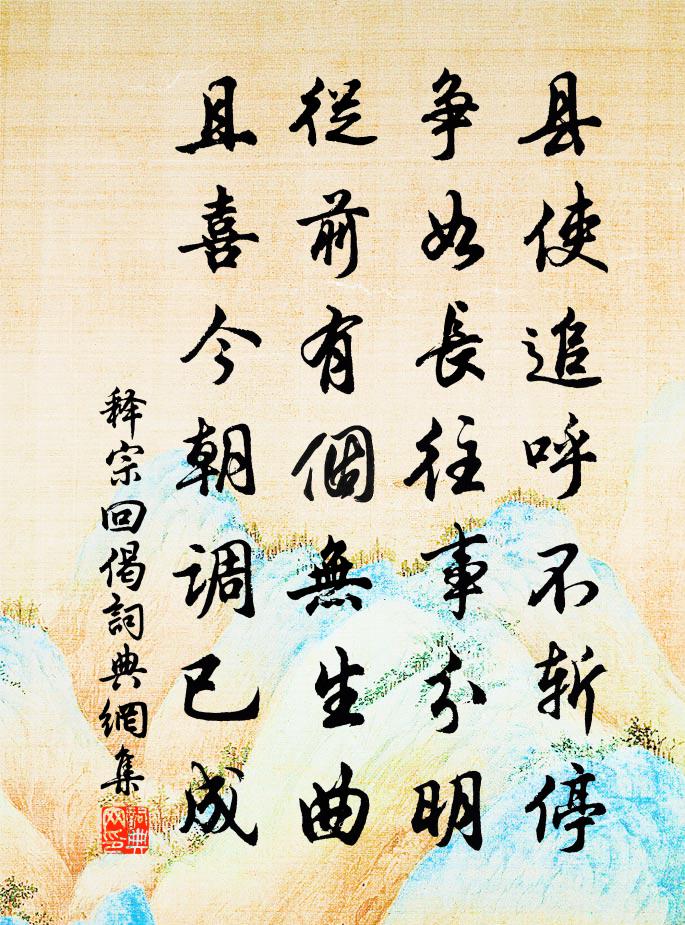 县使追呼不斩停
争如長往事分明
從前有個無生曲
且喜今朝调已成
释宗回偈詞典網集
詞典网印